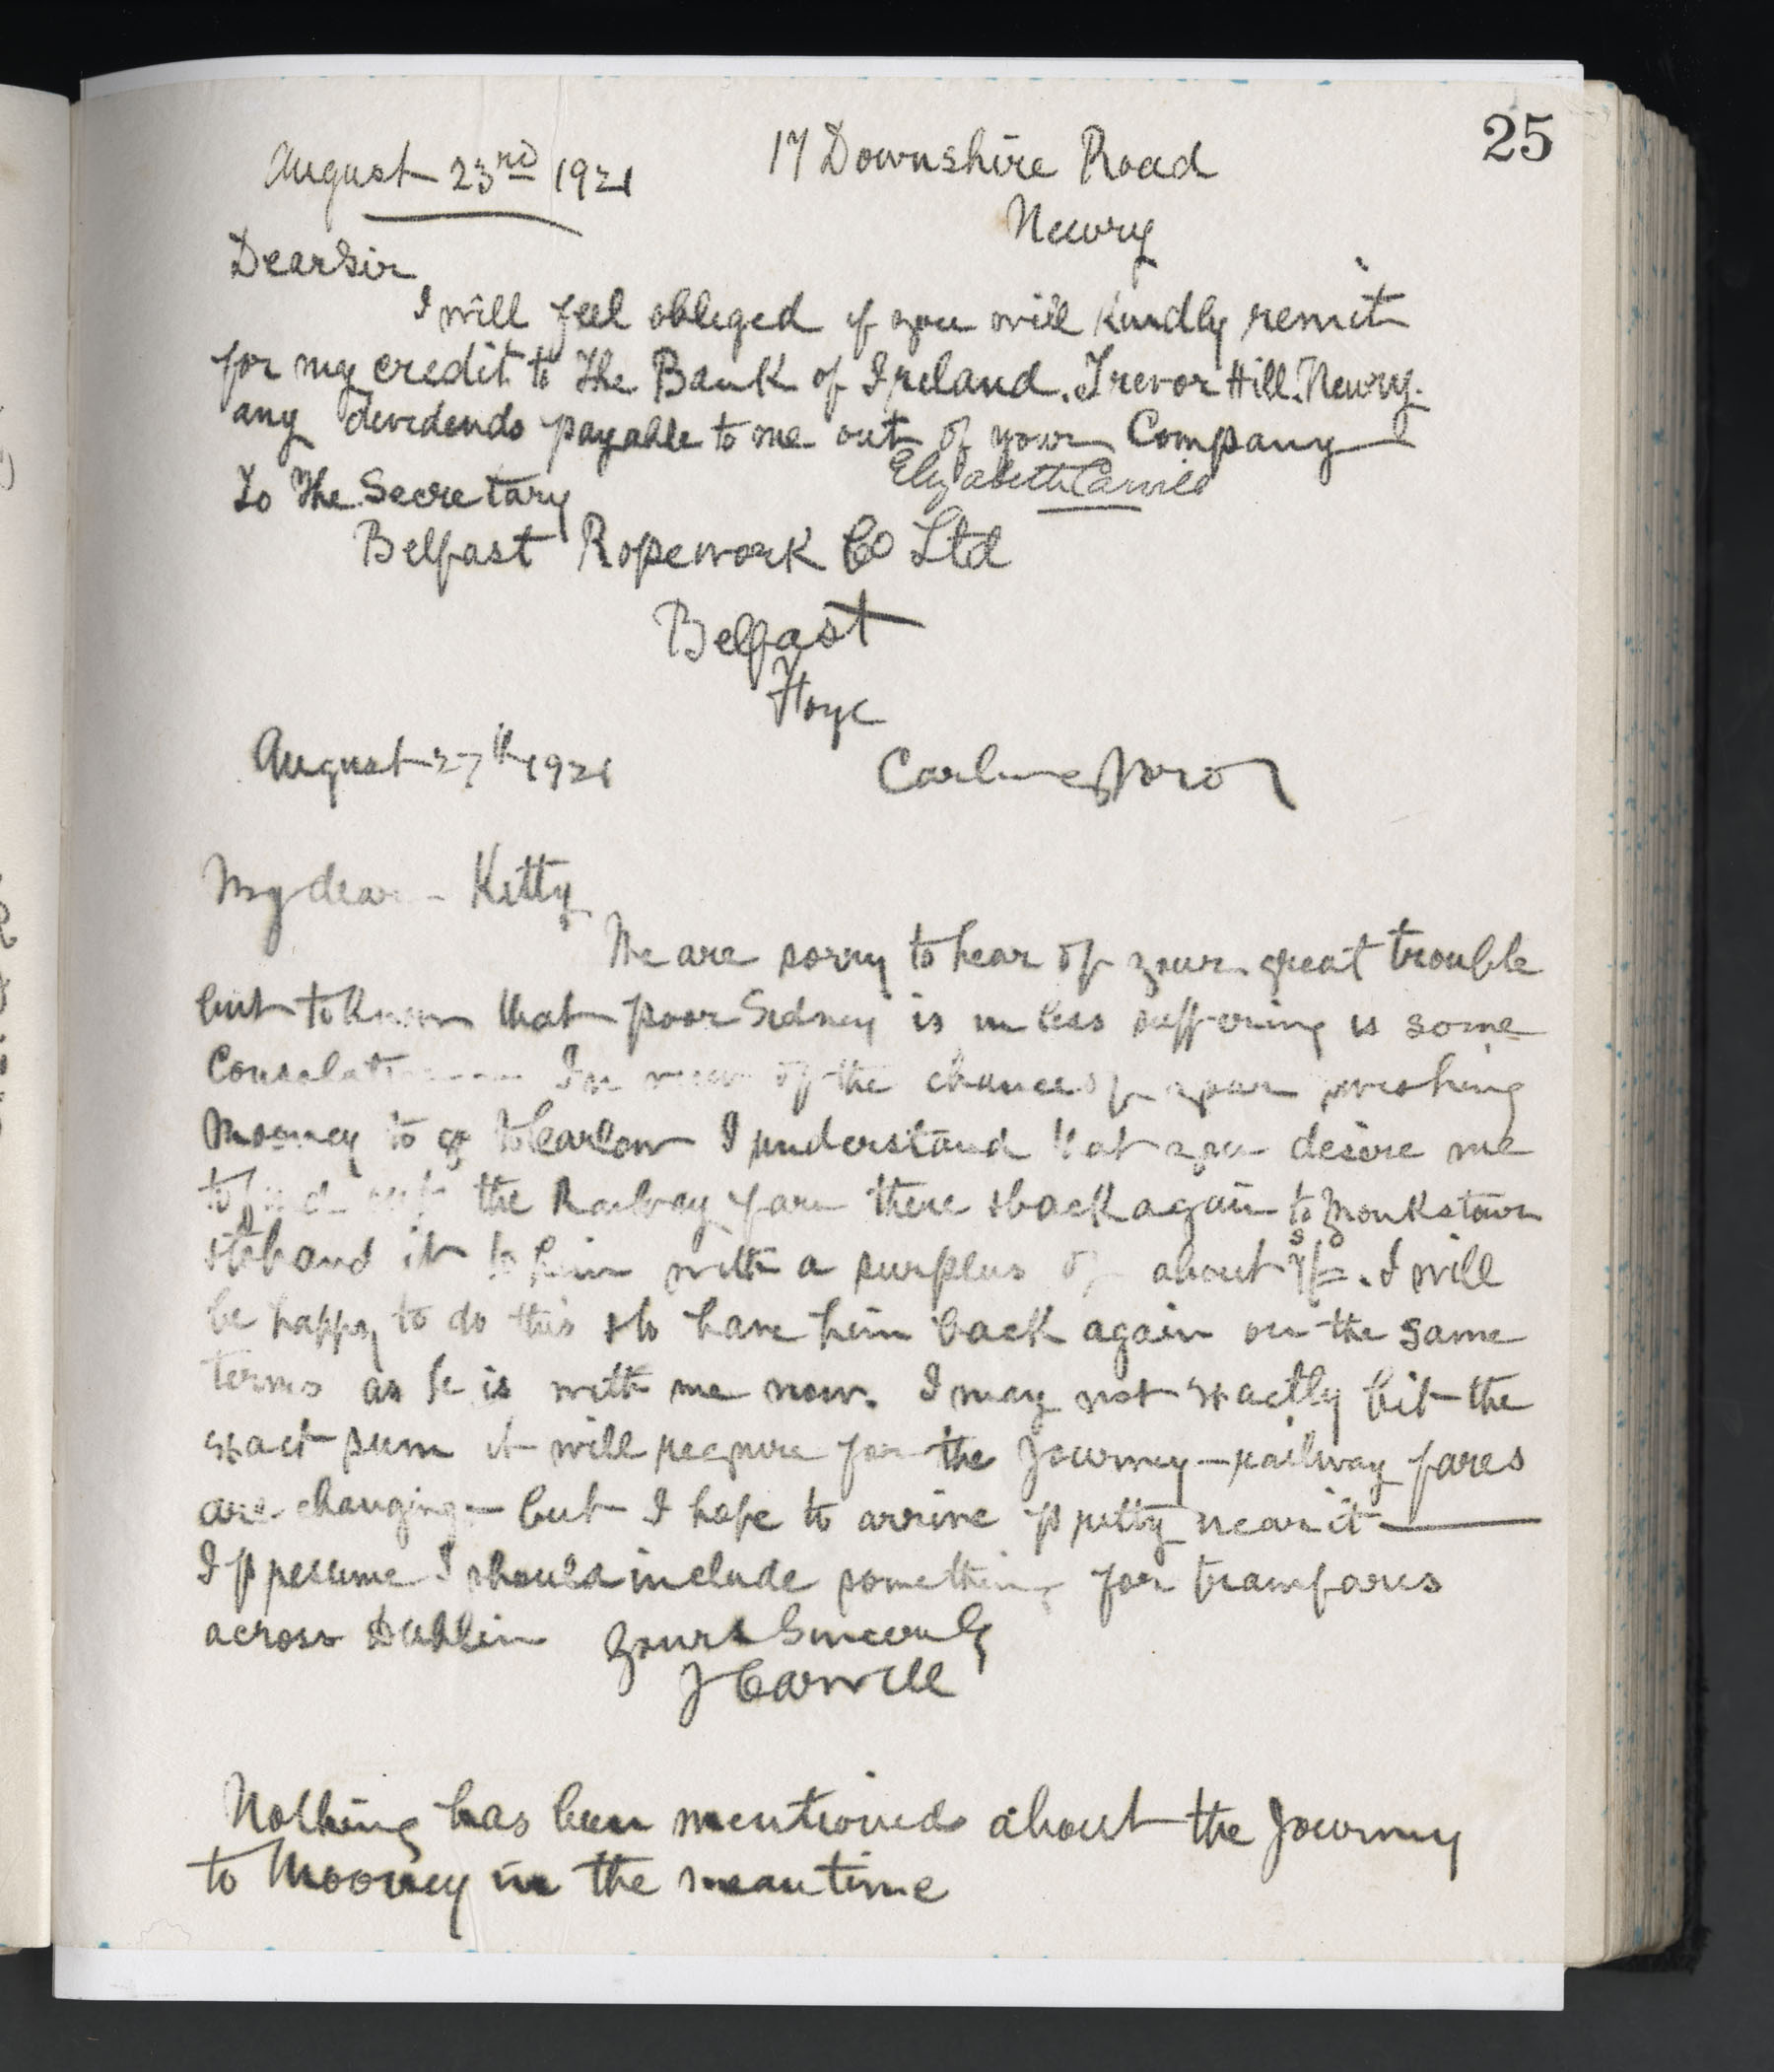 25
August 23rd 1921
17 Downshire Road
Newry
Dear Sir
I will feel obliged if you will kindly remit
for my credit to The Bank of Ireland. Trevor Hill. Newry.
any dividends payable to me out of your Company
Elizabeth Carvill
To The Secretary
Belfast Ropework Co Ltd
Belfast
August 27th 1921
My dear Kitty
We are sorry to hear of your great trouble
but to know that poor Sidney is in less suffering is some
In view of the chance of your wishing
Mooney to go to Carlow I understand that you desire me
to find out the Railway fare there & back again to Monkstown
& to hand it to him with a surplus of about I will
be happy to do this & to have him back again on the same
terms as he is with me now. I may not exactly hit the
exact sum it will require for the Journey – railway fares
are changing – but I hope to arrive pretty near it
I presume I should include something for tramfares
across Dublin Yours Sincerely
J Carvill
Nothing has been mentioned about the Journey
to Mooney in the meantime